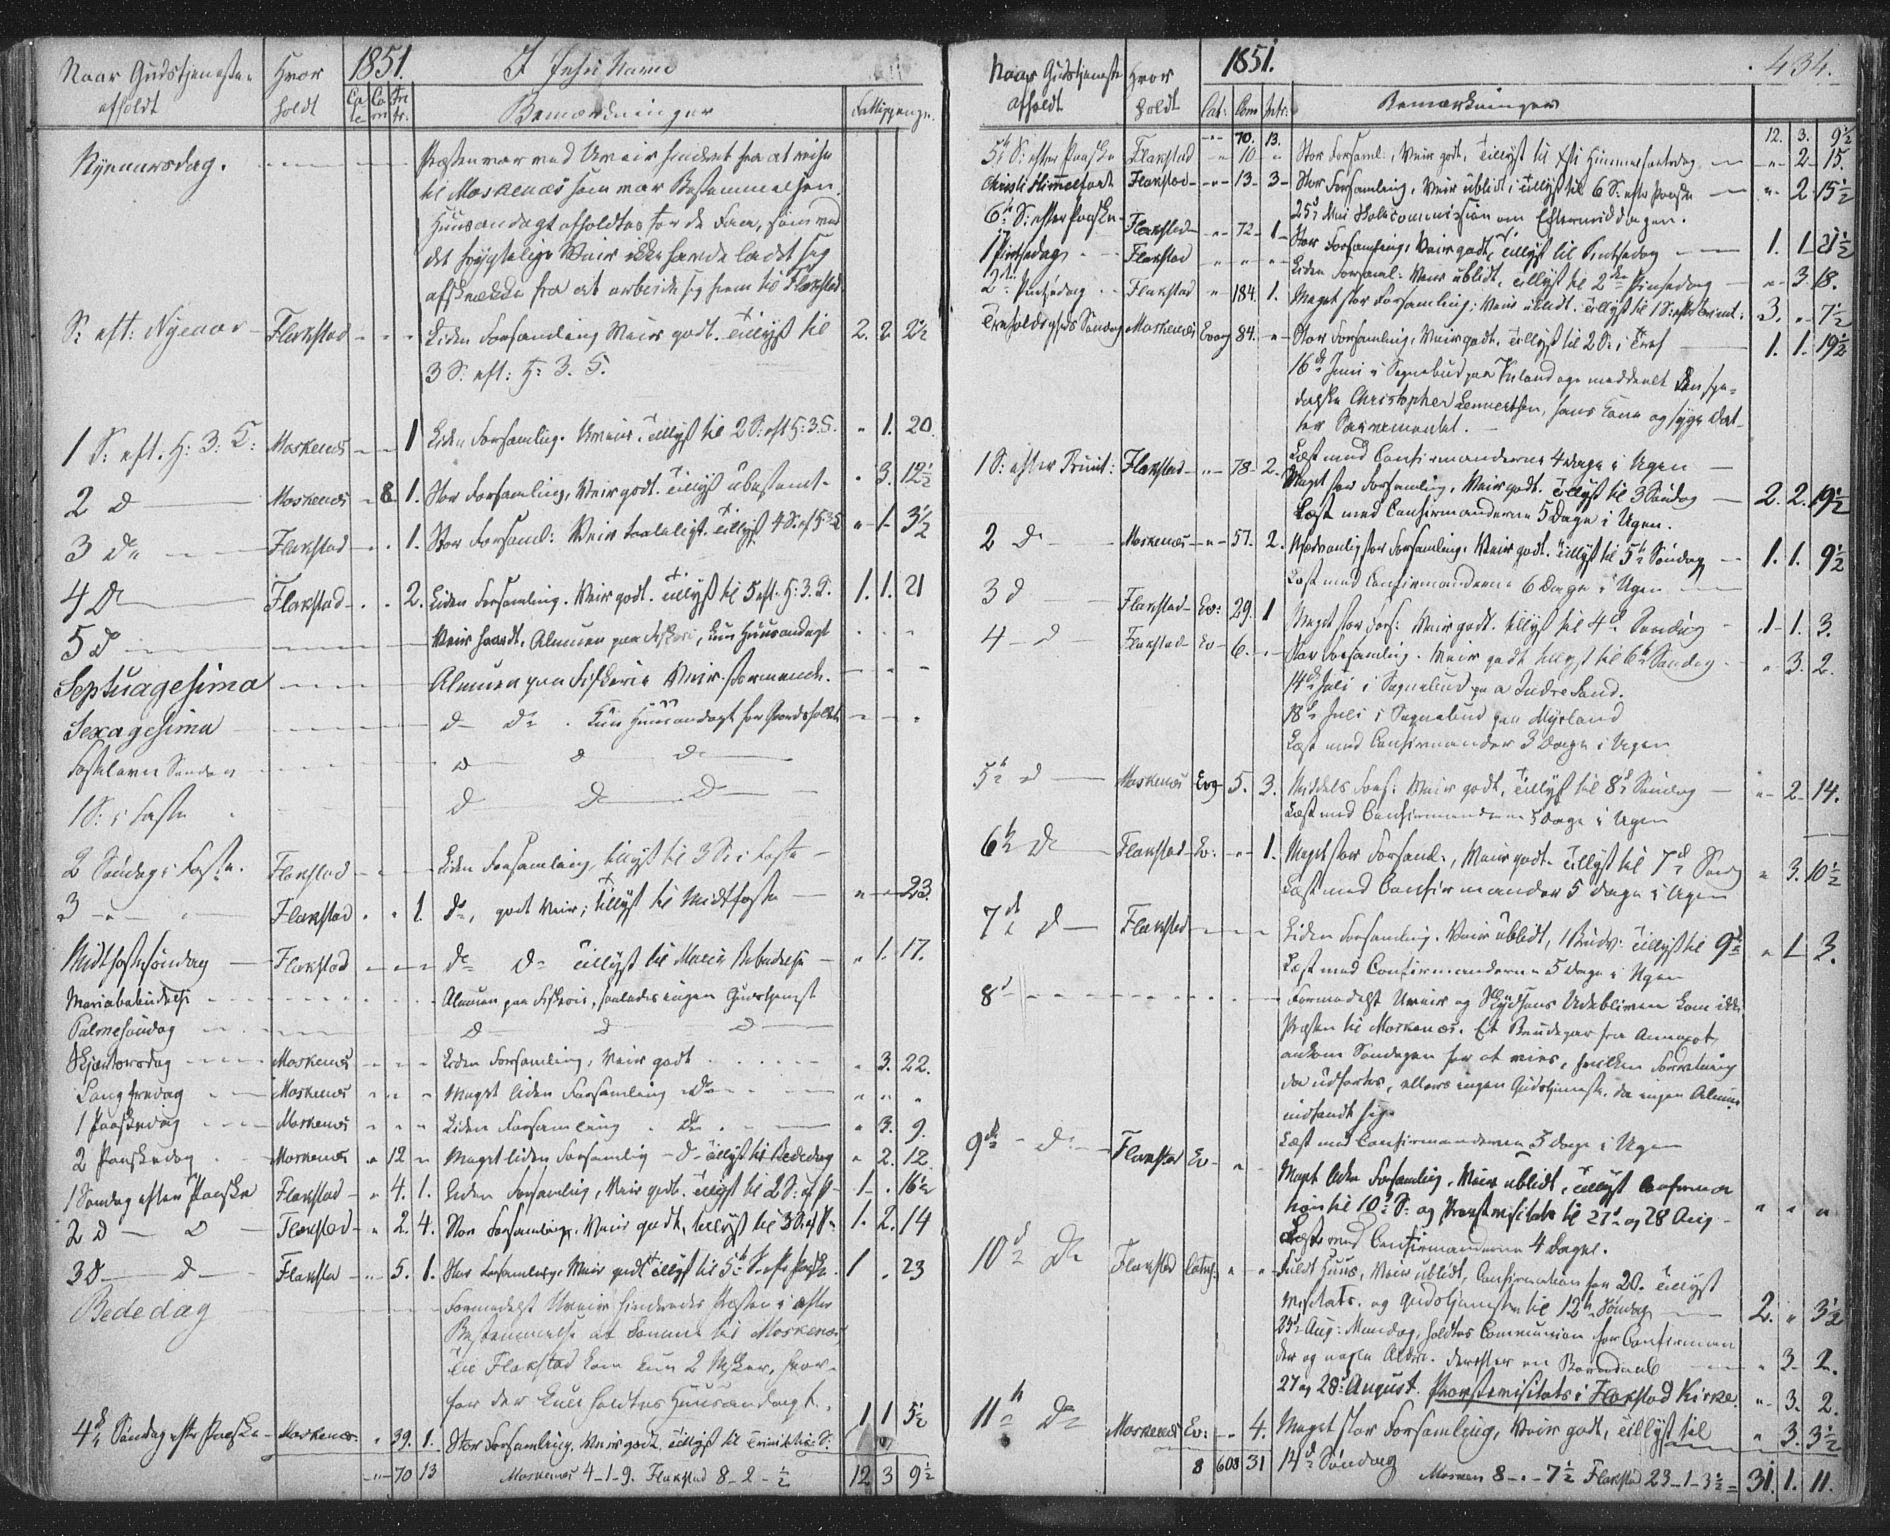 Naar Gudstjeneste afholdt | Hvor holdt | 1851. I Jesu Navn
Cate | Con | Intr. | Bemærkninger | Fattigpenge
Nyeaarsdag. Præsten var ved Uveir hindret fra at reise
til Moskenæs som var Bestemmelsen.
Huusandagt afholdtes for de Faa, som ved
det frygtelige Veir ikke havde ladet sig
afskrække fra at arbeide sig frem til Flakstad
S: eft: Nyeaar Flakstad Liden Forsamling Veir godt. Tillyst til 2. 2 2½
3 S: eft: H: 3. K.
1 S: eft. H: 3. K: Moskenæs 1 Liden Forsamlig. Uveir. Tillyst til 2 S: eft H: 3. K. " 1. 20.
2 D Moskenæs 8 1. Stor Forsamling, Veir godt. Tillyst ubestemt. 3. 12½
3 Do Flakstad 1. Stor Forsaml: Veir taaleligt. Tillyst 4 S: ef H: 3 K " 1. 3½
4 Do Flakstad 2. Liden Forsamling. Veir godt. Tillyst til 5 eft. H: 3. K. 1. 1. 21
5 D Veir haardt, Almuen paa Fiskeri, kun Huusandagt
Septuagesima Almuen paa Fiskerie Veir stormende.
Sexagesima D Do. Kun Huusandagt for Gaardsfolket
Fastelavn Søndag D D D
1 S: i Faste D D D
2 Søndag i Faste. Flakstad Liden Forsamling, tillyst til 3 S: i Faste
3 Flakstad 1. Do, godt Veir; Tillyst til Midtfaste " 23.
Midtfastesøndag Flakstad Do Do Tillyst til Mariæ Bebudelse " 1. 17.
Mariabebudelse Almuen paa Fiskeri, saaledes ingen Gudstjenest
Palmesøndag D D D
Skjærtorsdag Moskenæs Liden Forsamling, Veir godt 3. 22.
Langfredag Moskenæs Meget liden Forsamling Do
1 Paaskedag Moskenæs Liden Forsamling Do " 3. 9.
2 Paaskedag Moskenæs " 12 " Meget liden Forsamlig Do tillyst til Bededag " 2. 12.
1 Søndag efter Paaske Flakstad " 4. 1. Liden Forsamlig, Veir godt. Tillyst til 2 S: ef P 1 16½
2 D D Flakstad " 2. 4. Stor Forsamling. Veir godt, tillyst til 3 S: ef P 1. 2. 14
3 D D Flakstad " 5. 1. Stor Forsamling. Veir godt tillyst til 5te S. efter Paaske. 1 23
Bededag Formedelst Uveir hindredes Præsten i efter
Bestemmelse at komme til Moskenæs,
til Flakstad kom kun 2 Skyer, hvor-
for der kun holdtes Huusandagt.
4de Søndag efter Paaske Moskenæs. " 39. 1. Stor Forsamling. Veir godt tillyst til Trinitatis S: 1 1 5½
70 13 Moskenæs 4-1-9. Flakstad 8-2-½ 12 3 9½
Naar Gudstjeneste afholdt | Hvor holdt | 1851. | 434.
Cat: | Com | Intr: | Bemærkninger
70. 13. 12. 3. 9½
5te S: efter Paaske Flakstad " 10 " Stor Forsaml., Veir godt, Tillyst til Chr: Himmelfartsdag " 2 15.
Christi Himmelfart Flakstad 13 3 Stor Forsamling, Veir ublidt, Tillyst til 6 S. efter Paaske " 2 15½
25de Mai Skolecommission om Eftermiddagen.
6te S: efter Paaske Flakstad " 72 1 Stor Forsamling, Veir godt, tillyst til Pintsedag 1. 1 21½
1 Pintsedag Flakstad Liden Forsaml: Veir ublidt, tillyst til 2den Pinsedag 3 18.
2den Pintsedag Flakstad " 184. 1. Meget stor Forsamling; Veir ublidt. Tillyst til 1 S: efter Trinit: 3. " 7½
Trefoldigheds Søndag Moskenæs Evang 84. " Stor Forsamling, Veir godt. Tillyst til 2 S: i Tref 1. 1. 19½
16de Juni i Sognebud paa Vulandage meddeelt den spe-
dalske Christopher Lennertsen, hans Kone og syge Dat-
ter Sacramentet.
Læst med Confirmanderne 4 Dage i Ugen
1 S: efter Trinit: Flakstad 78 2. Meget stor Forsamling, Veir godt. Tillyst til 3 Søndag 2. 2. 19½
Læst med Confirmanderne 5 Dage i Ugen.
2 Do Moskenæs 57. 2. Usædvanlig stor Forsamling. Veir godt. Tillyst til 5te Søndag 1. 1. 9½
Læst med Confirmanderne 6 Dage i Ugen
3 D Flakstad Ev: 29. 1 Meget stor Fors: Veir godt. tillyst til 4de Søndag 1 1. 3.
4 D Flakstad Ev 6. Stor Forsamlig. Veir godt tillyst til 6te Søndag " 3. 2.
14de Juli i Sognebud paa Indre Sand.
18de Juli i Sognebud paa Myrland
Læst med Confirmander 3 Dage i Ugen
5te D Moskenæs Evg 5. 3. Middels Fors: Veir godt, Tillyst til 8de Søndag 2 14.
Læst med Confirmanderne 5 Dage i Ugen
6te Do Flakstad Ev: 1. Meget stor Forsaml., Veir godt. Tillyst til 7de Sønd " 3. 10½
Læst med Confirmander 5 Dage i Ugen
7de D Flakstad Liden Forsamling. Veir ublidt, 1 Brudv: Tillyst til 9de " 1 3.
Læst med Confirmanderne 5 Dage i Ugen
8de Formedelst Uveir og Skydsens Udebliven kom ikke
Præsten til Moskenæs. Et Brudepar fra Annexet
ankom Søndagen for at vies, hvilken Forretning
da udførtes, ellers ingen Gudstjeneste, da ingen Almue
indfandt sig.
Læst med Confirmanderne 5 Dage i Ugen
9de Do Flakstad Ev Meget liden Forsamlig. Veir ublidt, Tillyst Confirma
tion til 10de S: og Provstevisitats til 27de og 28 Aug
Læst med Confirmanderne 4 Dage.
10de Do Flakstad Catech. " " Fuldt Huus, Veir ublidt, Confirmation for 20. Tillyst
Visitats. og Gudstjeneste til 12te Søndag 2. " 3½
25de Aug: Mandag, holdtes Communion for Confirman
der og nogle Ældre. derefter en Barnedaab " 3 2.
27 og 28de August. Provstevisitats i Flakstad Kirke. " 3. 2.
11te Do Moskenæs Ev: 4. Meget stor Forsamling, Veir godt, tillyst til " 3. 3½
14de Søndag
8 608 31 Mosken 8-"-7½ Flakstad 23-1-3½ = 31. 1. 11.